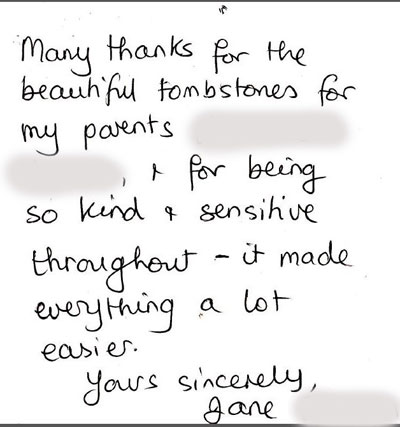 Many thanks for the
beautiful tombstones for
my parents
, & for being
so kind & sensitive
throughout - it made
everything a lot
easier.
Yours sincerely,
Jane